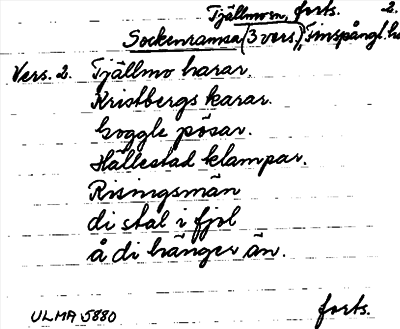 Tjällmo sn, forts. -2.
Sockenramsa (3 vers), Finspångl. hd
Vers. 2. Tjällmo harar,
Kristbergs karar.
Goggle påsar.
Hällestad klampar.
Risingsmän
di stal i fjol
å di hänger än.
forts.
ULMA 5880